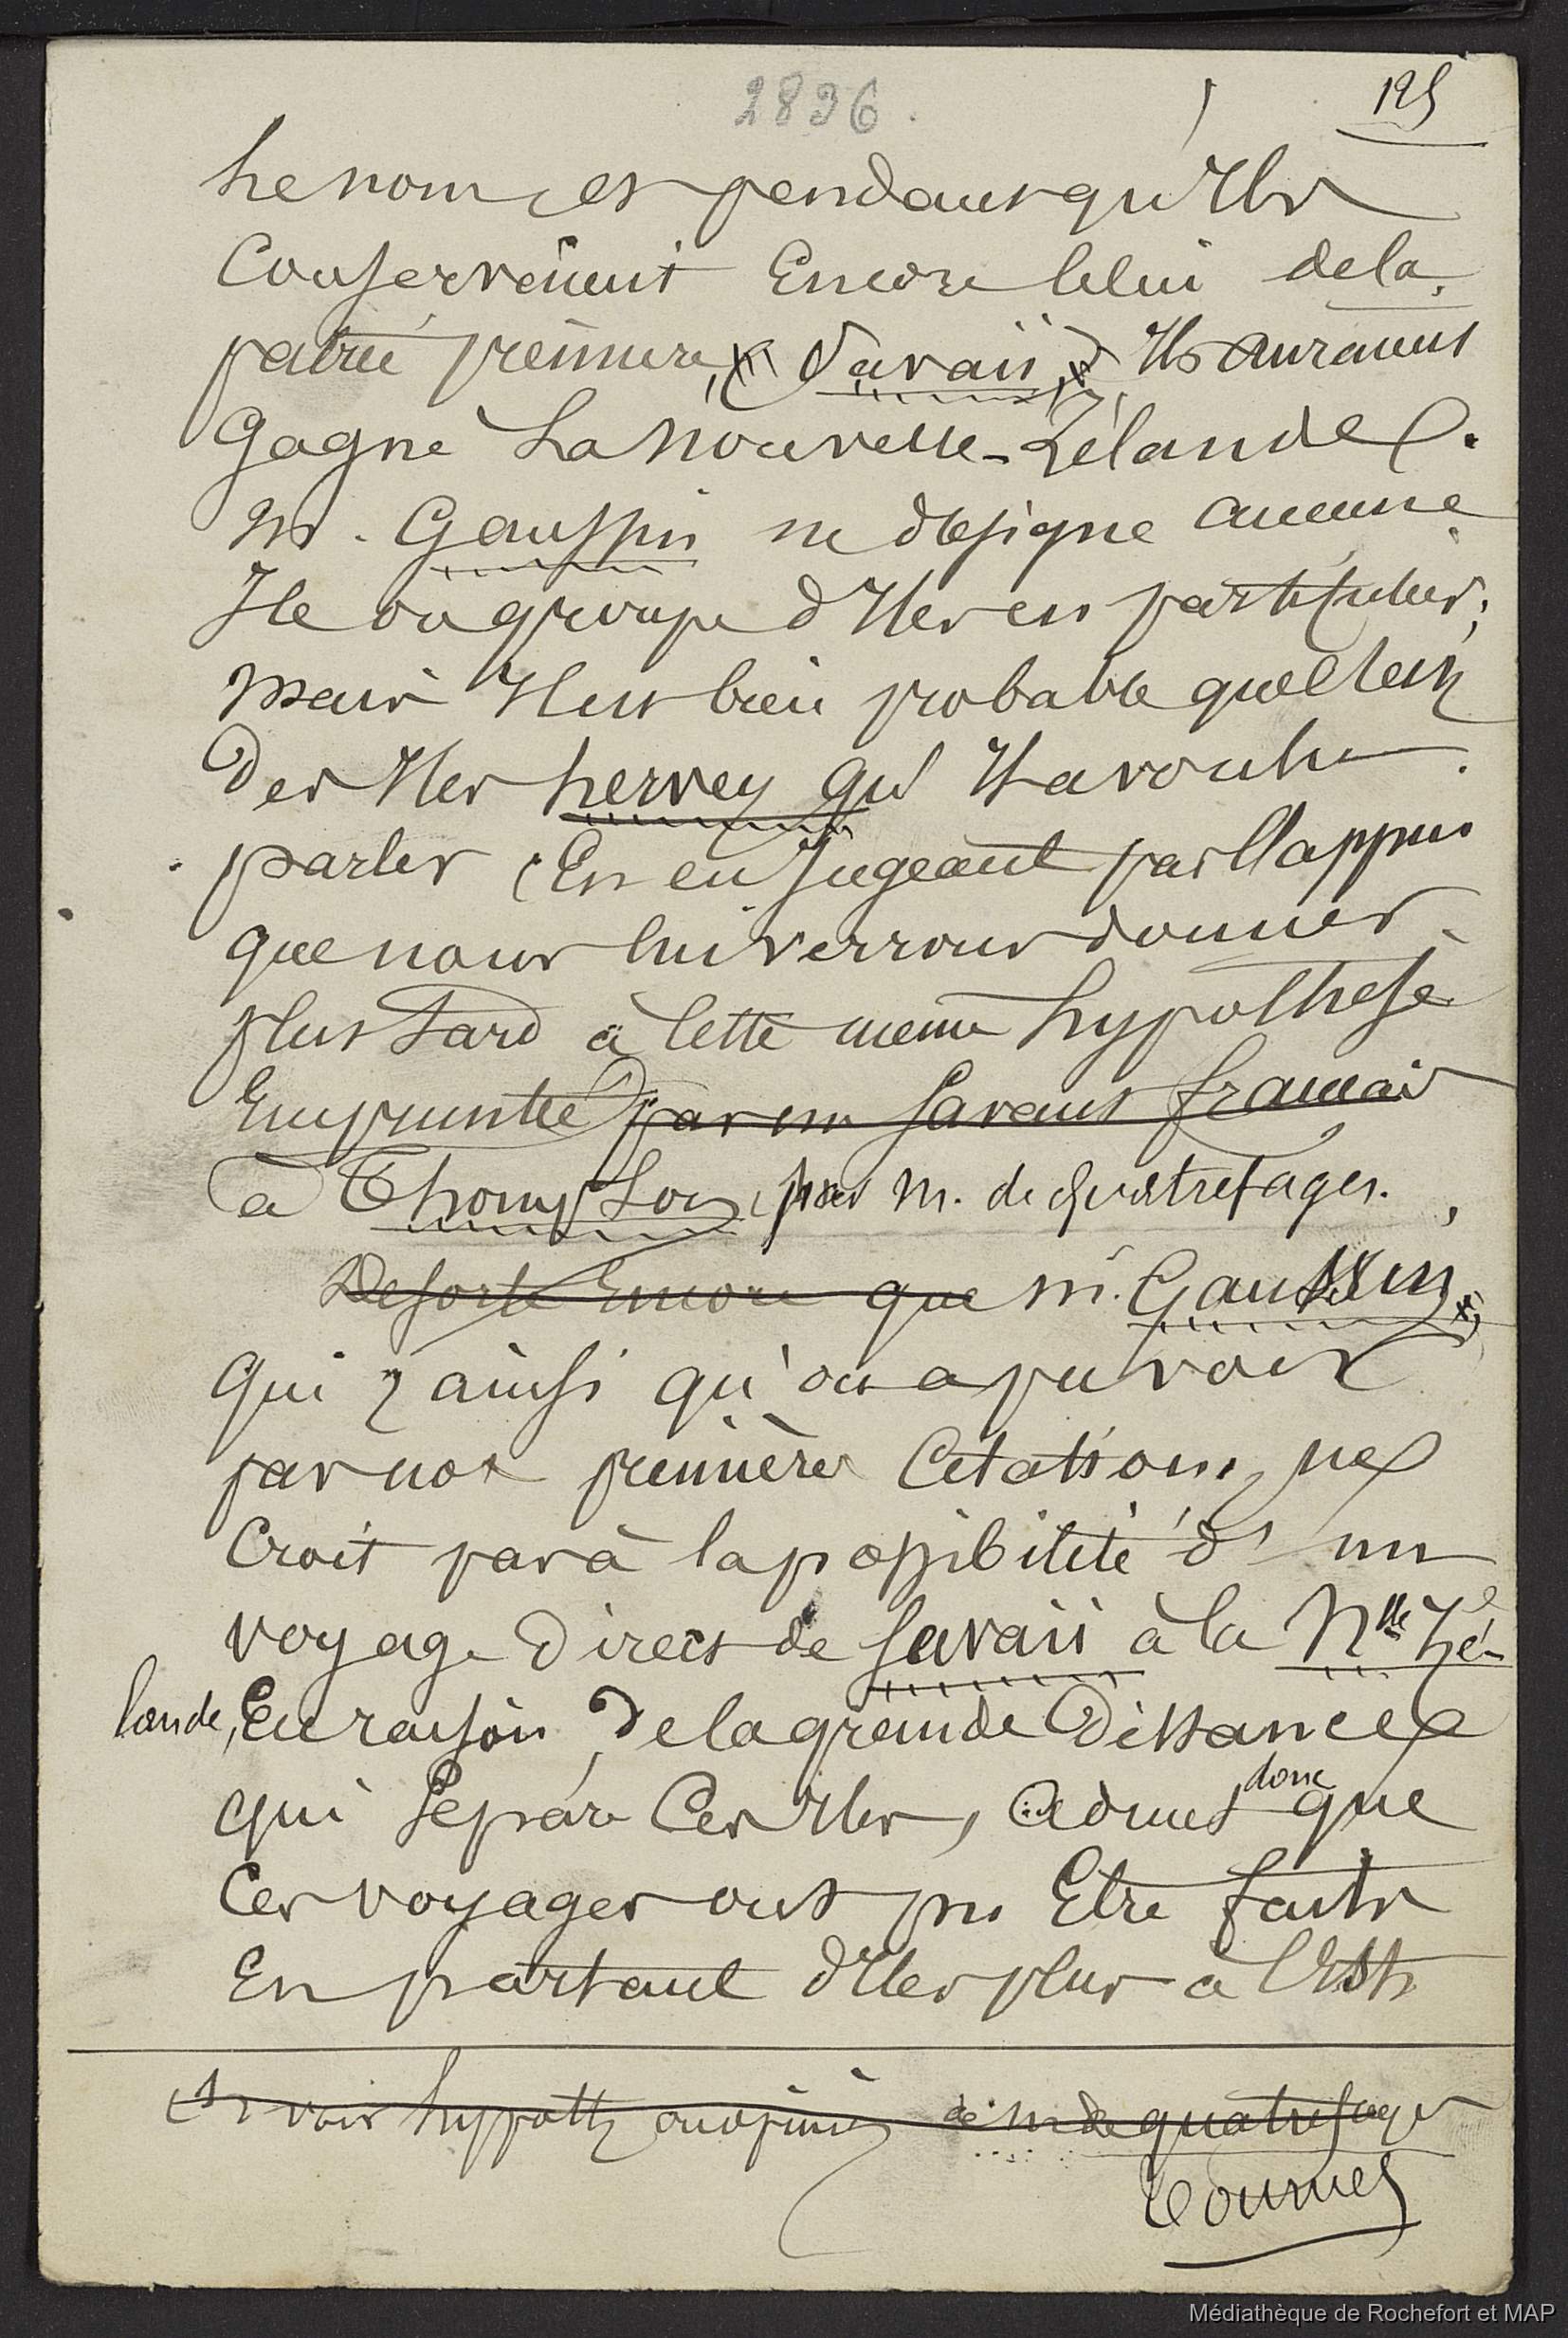 2836.
125
le nom, et pendant qu'Ils
Conservaient Encore Celui de la
patrie premiere, Savaii, Ils auraient
Gagné La Nouvelle-Zélande.
M. Gaussin ne désigne aucune
Ile ou groupe d'Iles en particulier;
Mais Il est bien probable que c'est
Des Iles hervey qu'Il a voulu
parler, En en Jugeant par l'appui
que nous lui verrons donner
plus tard à Cette meme hypothese
Empruntée par un Savant francais
à Thomson, par M. de Quatrefages.
De sorte Encore que M. Gaussin,
qui, ainsi qu'on a pu voir
par nos premières Citations, ne
Croit pas à la possibilité d'un
voyage Direct de Savaii à la Nlle Zé-
lande, En raison De la grande Distance
qui Sépare Ces Iles, admet donc que
Ces voyages ont pu Etre faits
En partant d'Iles plus à l'Est
voir hypoth ou opinion de M de quatrefages
Tournez
Médiathèque de Rochefort et MAP